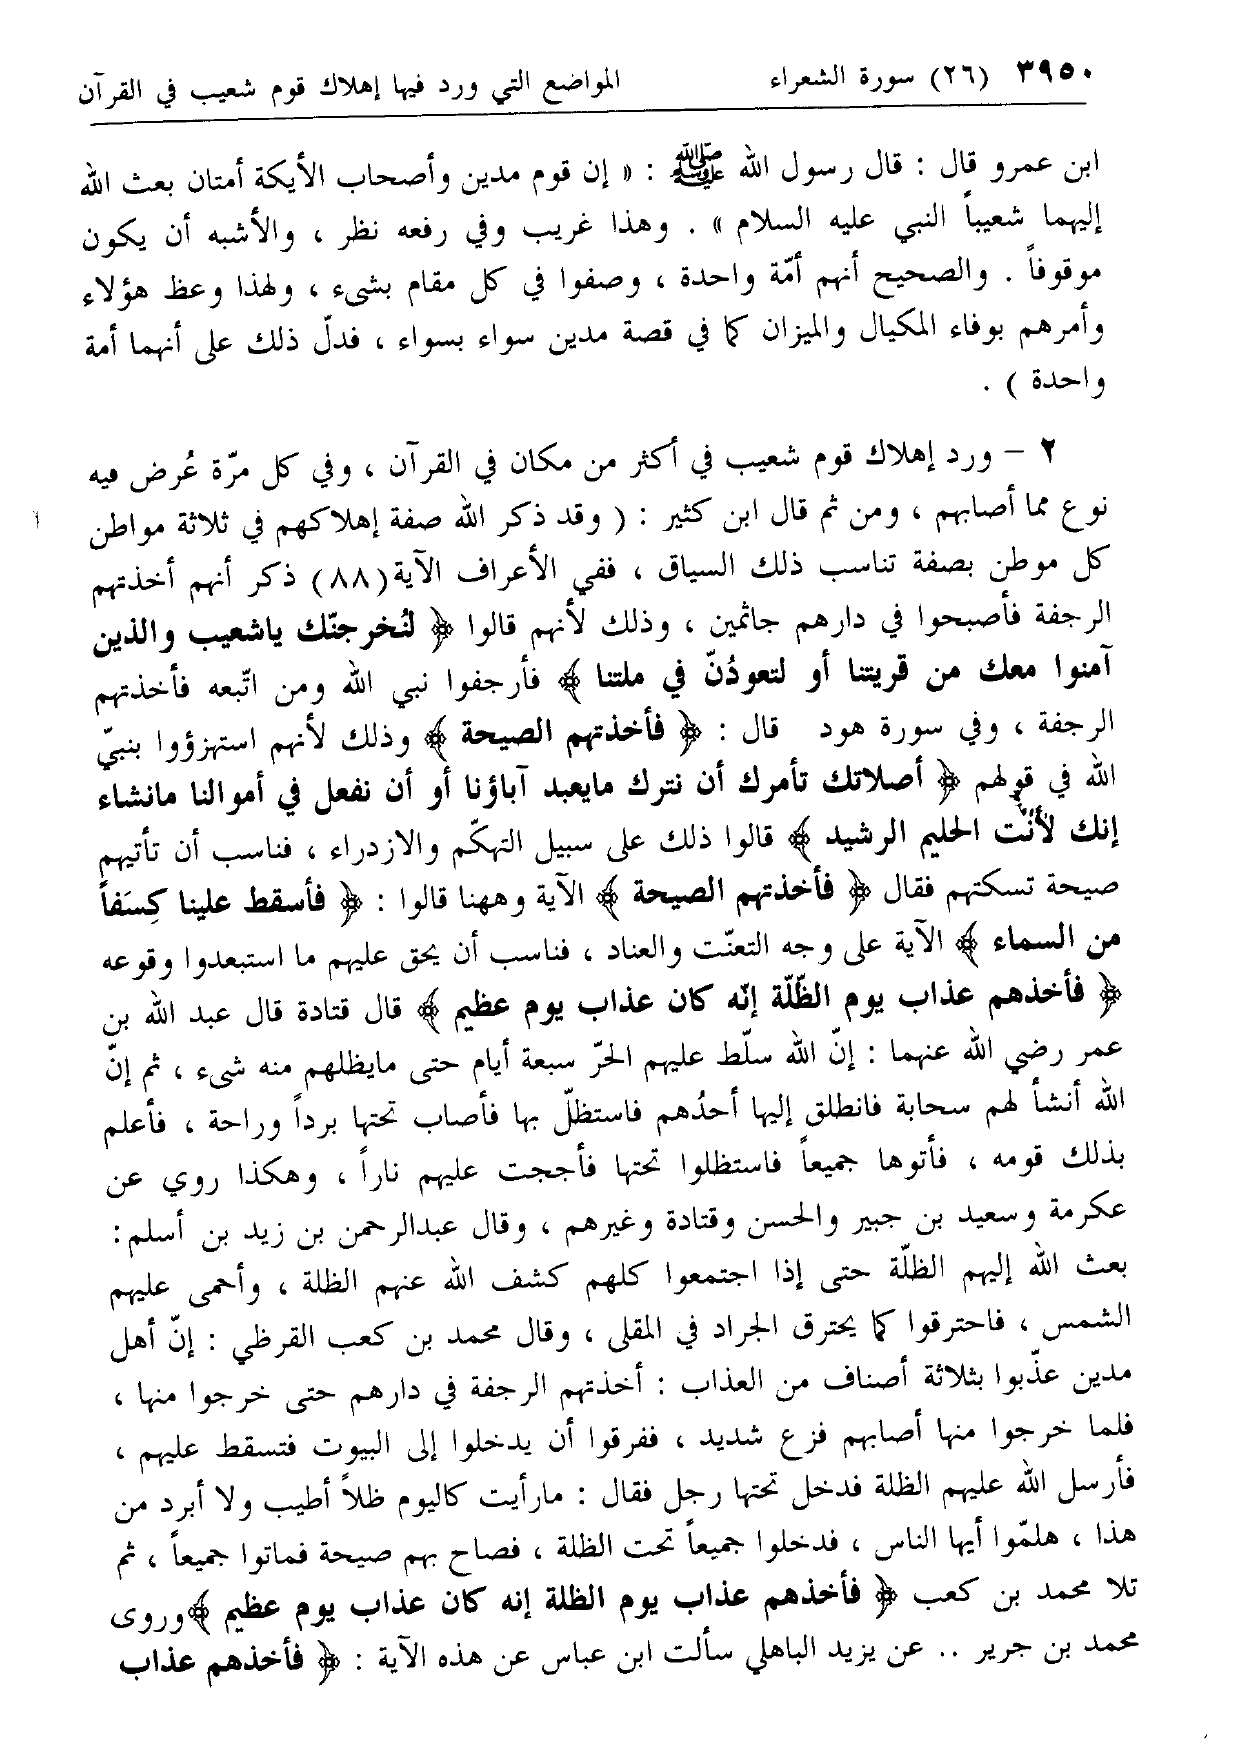 ٣٩٥٠ (٢٦) سورة الشعراء المواضع التي ورد فيها إهلاك قوم شعيب في القرآن
ابن عمرو قال : قال رسول الله ﷺ : « إن قوم مدين وأصحاب الأيكة أمتان بعث الله
إليهما شعيباً النبي عليه السلام » . وهذا غريب وفي رفعه نظر ، والأشبه أن يكون
موقوفاً . والصحيح أنهم أمّة واحدة ، وصفوا في كل مقام بشيء ، ولهذا وعظ هؤلاء
وأمرهم بوفاء المكيال والميزان كما في قصة مدين سواء بسواء ، فدلّ ذلك على أنهما أمة
واحدة ) .
٢ – ورد إهلاك قوم شعيب في أكثر من مكان في القرآن ، وفي كل مرّة عُرض فيه
نوع مما أصابهم ، ومن ثم قال ابن كثير : ( وقد ذكر الله صفة إهلاكهم في ثلاثة مواطن
كل موطن بصفة تناسب ذلك السياق ، ففي الأعراف الآية(٨٨) ذكر أنهم أخذتهم
الرجفة فأصبحوا في دارهم جاثمين ، وذلك لأنهم قالوا ﴿ لنُخرجنّك ياشعيب والذين
آمنوا معك من قريتنا أو لتعودُنّ في ملتنا ﴾ فأرجفوا نبي الله ومن اتّبعه فأخذتهم
الرجفة ، وفي سورة هود قال : ﴿ فأخذتهم الصيحة ﴾ وذلك لأنهم استهزؤوا بنبيّ
الله في قولهم ﴿ أصلاتك تأمرك أن نترك مايعبد آباؤنا أو أن نفعل في أموالنا مانشاء
إنك لأنت الحليم الرشيد ﴾ قالوا ذلك على سبيل التهكّم والازدراء ، فناسب أن تأتيهم
صيحة تسكتهم فقال ﴿ فأخذتهم الصيحة ﴾ الآية وههنا قالوا : ﴿ فأسقط علينا كِسَفاً
من السماء ﴾ الآية على وجه التعنّت والعناد ، فناسب أن يحق عليهم ما استبعدوا وقوعه
﴿ فأخذهم عذاب يوم الظّلّة إنّه كان عذاب يوم عظيم ﴾ قال قتادة قال عبد الله بن
عمر رضي الله عنهما : إنّ الله سلّط عليهم الحرّ سبعة أيام حتى مايظلهم منه شيء ، ثم إنّ
الله أنشأ لهم سحابة فانطلق إليها أحدُهم فاستظلّ بها فأصاب تحتها برداً وراحة ، فأعلم
بذلك قومه ، فأتوها جميعاً فاستظلوا تحتها فأججت عليهم ناراً ، وهكذا روي عن
عكرمة وسعيد بن جبير والحسن وقتادة وغيرهم ، وقال عبدالرحمن بن زيد بن أسلم:
بعث الله إليهم الظلّة حتى إذا اجتمعوا كلهم كشف الله عنهم الظلة ، وأحمى عليهم
الشمس ، فاحترقوا كما يحترق الجراد في المقلى ، وقال محمد بن كعب القرظي : إنّ أهل
مدين عذّبوا بثلاثة أصناف من العذاب : أخذتهم الرجفة في دارهم حتى خرجوا منها ،
فلما خرجوا منها أصابهم فزع شديد ، ففرقوا أن يدخلوا إلى البيوت فتسقط عليهم ،
فأرسل الله عليهم الظلة فدخل تحتها رجل فقال : مارأيت كاليوم ظلاً أطيب ولا أبرد من
هذا ، هلمّوا أيها الناس ، فدخلوا جميعاً تحت الظلة ، فصاح بهم صيحة فماتوا جميعاً ، ثم
تلا محمد بن كعب ﴿ فأخذهم عذاب يوم الظلة إنه كان عذاب يوم عظيم ﴾وروى
محمد بن جرير .. عن يزيد الباهلي سألت ابن عباس عن هذه الآية : ﴿ فأخذهم عذاب